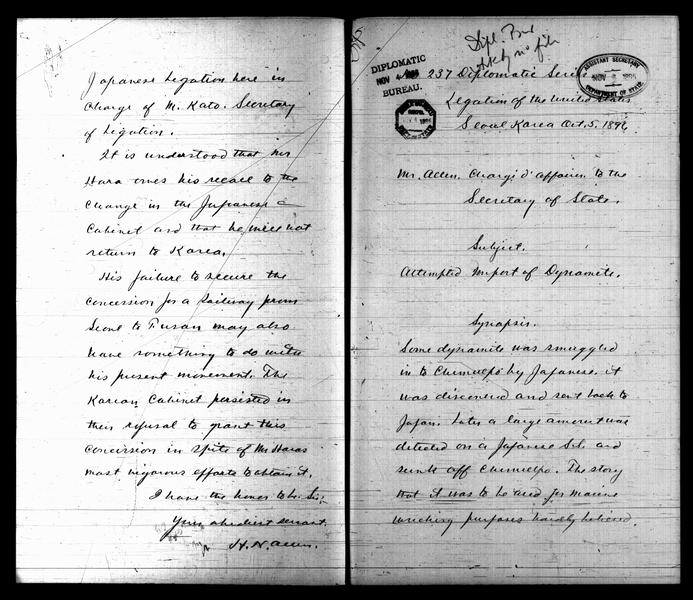 Japanese Legation here in
Charge of M. Kato. Secretary
of Legation.
It is understood that Mr
Hara owes his recall to the
Change in the Japanese
Cabinet and that he will not
return to Korea.
His failure to secure the
concession for a Railway from
Seoul to Fusan may also
have something to do with
his present movement. The
Korean Cabinet persisted in
their refusal to grant this
concession in spite of Mr Haras
most vigorous efforts to obtain it.
I have the honor to be Sir,
Your obedient servant
H. N. Allen.
Dipl. Bu
no file
DIPLOMATIC
NOV
BUREAU.
ASSISTANT SECRETARY
NOV
DEPARTMENT OF STATE
237 Diplomatic Series
Legation of the United States
Seoul Korea Oct. 5. 1896
Mr. Allen, Chargé d'affaires to the
Secretary of State.
Subject.
Attempted Import of Dynamite.
Synopsis.
Some dynamite was smuggled
in to Chemulpo by Japanese. it
was discovered and sent back to
Japan. Later a large amount was
detected on a Japanese S.S. and
sunk off Chemulpo. The story
that it was to be used for marine
wrecking purposes hardly believed.